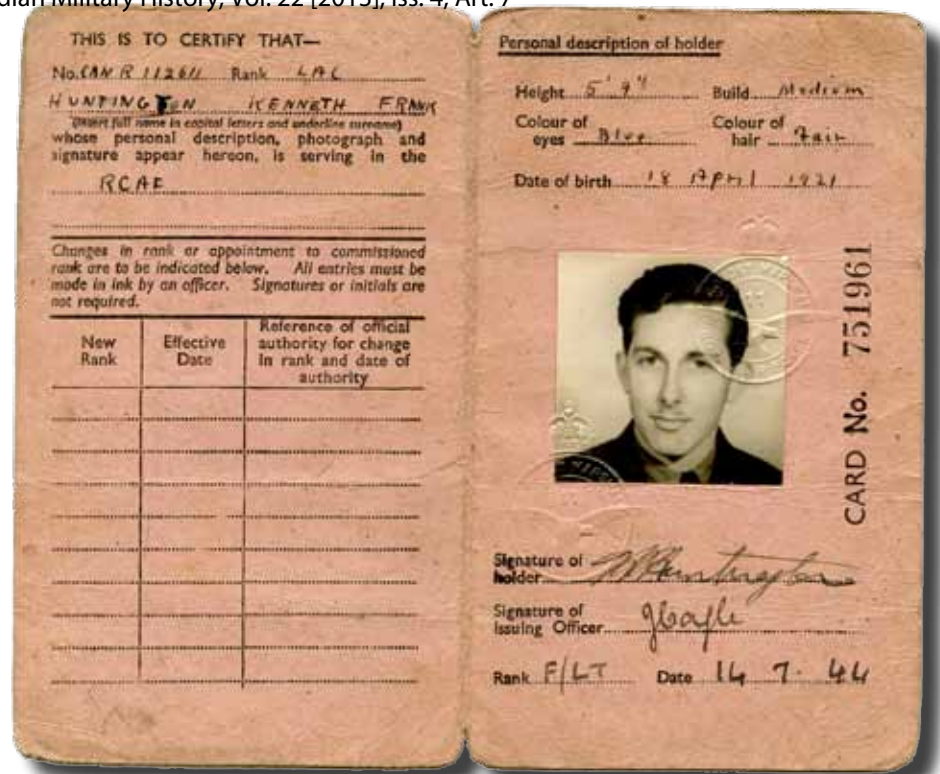 dian Military History, Vol. 22 [2013], Iss. 4, Art. 7
THIS IS TO CERTIFY THAT—
No. CAN R 112611 Rank LAC
HUNTINGTON KENNETH FRANK
(Insert full name in capital letters and underline surname)
whose personal description, photograph and
signature appear hereon, is serving in the
RCAF
Changes in rank or appointment to commissioned
rank are to be indicated below. All entries must be
made in ink by an officer. Signatures or initials are
not required.
New Rank
Effective Date
Reference of official
authority for change
in rank and date of
authority
Personal description of holder
Height 5' 9" Build Medium
Colour of eyes Blue Colour of hair Fair
Date of birth 18 April 1921
CARD No. 751961
Signature of holder Huntington
Signature of
Issuing Officer
Rank F/LT Date 14 7 44